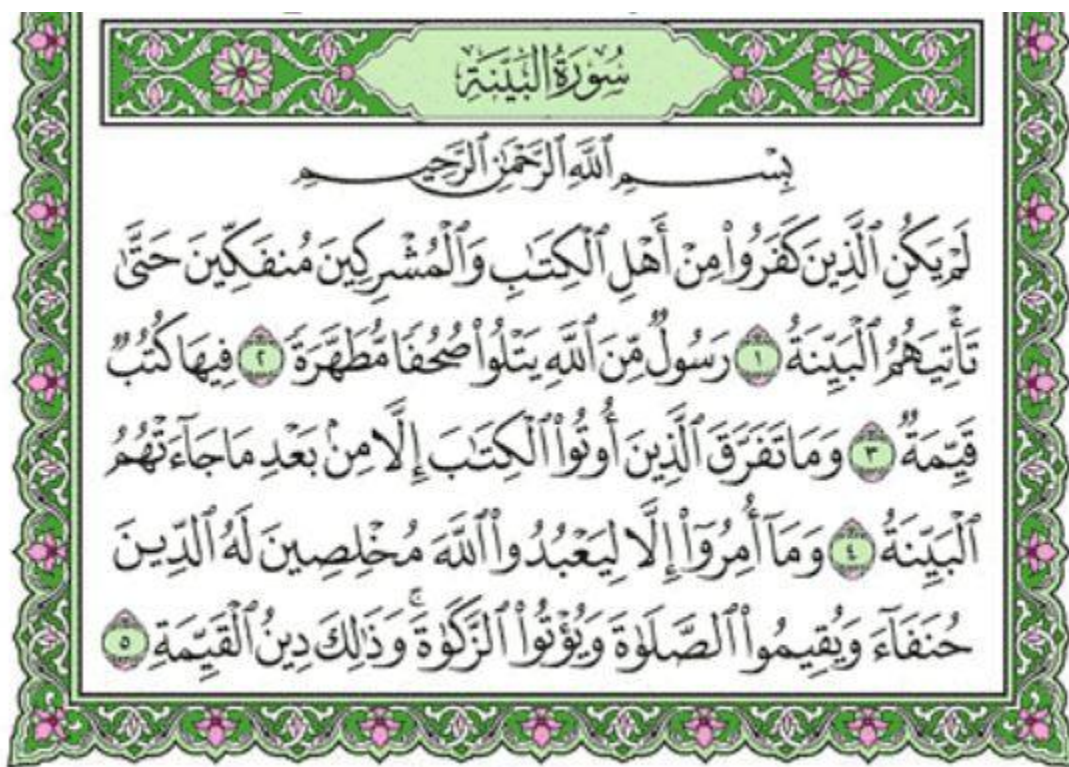 سُورَةُ الْبَيِّنَةِ
بِسْمِ ٱللَّهِ ٱلرَّحْمَٰنِ ٱلرَّحِيمِ
لَمْ يَكُنِ ٱلَّذِينَ كَفَرُوا۟ مِنْ أَهْلِ ٱلْكِتَٰبِ وَٱلْمُشْرِكِينَ مُنفَكِّينَ حَتَّىٰ
تَأْتِيَهُمُ ٱلْبَيِّنَةُ ١ رَسُولٌ مِّنَ ٱللَّهِ يَتْلُوا۟ صُحُفًا مُّطَهَّرَةً ٢ فِيهَا كُتُبٌ
قَيِّمَةٌ ٣ وَمَا تَفَرَّقَ ٱلَّذِينَ أُوتُوا۟ ٱلْكِتَٰبَ إِلَّا مِنۢ بَعْدِ مَا جَآءَتْهُمُ
ٱلْبَيِّنَةُ ٤ وَمَآ أُمِرُوٓا۟ إِلَّا لِيَعْبُدُوا۟ ٱللَّهَ مُخْلِصِينَ لَهُ ٱلدِّينَ
حُنَفَآءَ وَيُقِيمُوا۟ ٱلصَّلَوٰةَ وَيُؤْتُوا۟ ٱلزَّكَوٰةَ ۚ وَذَٰلِكَ دِينُ ٱلْقَيِّمَةِ ٥